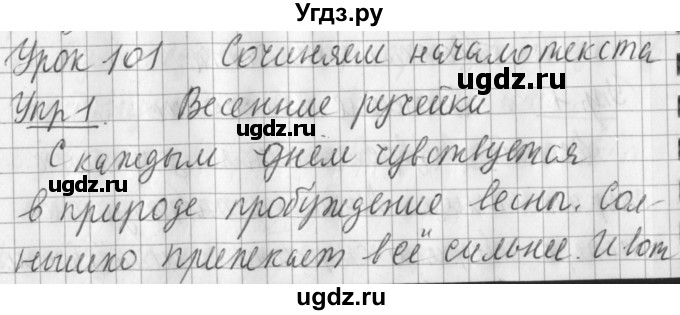 Угдз.ру
Урок 101 Сочиняем начало текста
ugdz.ru
Упр 1. Весенние ручейки
ugdz.ru
ugdz.ru
С каждым днём чувствуется
ugdz.ru
в природе пробуждение весны. Сол-
ugdz.ru
нышко припекает всё сильнее. И вот
ugdz.ru